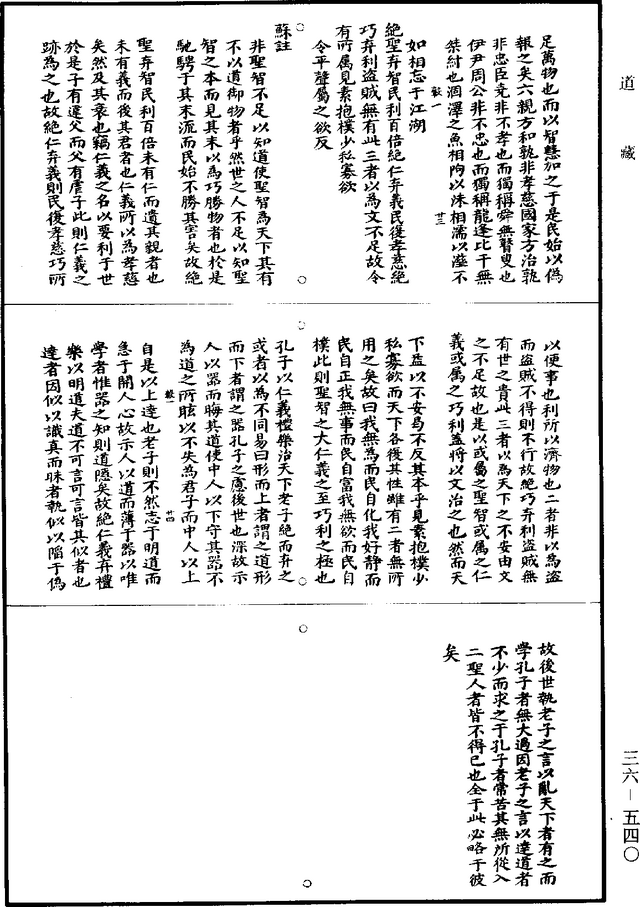 道藏
足萬物也而以智慧加之于是民始以偽
報之矣六親方和孰非孝慈國家方治孰
非忠臣堯非不孝也而獨稱舜無瞽叟也
伊尹周公非不忠也而獨稱龍逄比干無
桀紂也涸澤之魚相呴以沫相濡以溼不
如相忘于江湖
絕聖弃智民利百倍絕仁弃義民復孝慈絕
巧弃利盜賊無有此三者以為文不足故令
有所屬見素抱樸少私寡欲
令平聲屬之欲反
蘇註
非聖智不足以知道使聖智為天下其有
不以道御物者乎然世之人不足以知聖
智之本而見其末以為巧勝物者也於是
馳騁于其末流而民始不勝其害矣故絕
聖弃智民利百倍未有仁而遺其親者也
未有義而後其君者也仁義所以為孝慈
矣然及其衰也竊仁義之名以要利于世
於是子有違父而父有虐子此則仁義之
跡為之也故絕仁弃義則民復孝慈巧所
以便事也利所以濟物也二者非以為盜
而盜賊不得則不行故絕巧弃利盜賊無
有世之貴此三者以為天下之不安由文
之不足故也是以或屬之聖智或屬之仁
義或屬之巧利蓋將以文治之也然而天
下益以不安曷不反其本乎見素抱樸少
私寡欲而天下各復其性雖有二者無所
用之矣故曰我無為而民自化我好靜而
民自正我無事而民自富我無欲而民自
樸此則聖智之大仁義之至巧利之極也
孔子以仁義禮樂治天下老子絕而弃之
或者以為不同易曰形而上者謂之道形
而下者謂之器孔子之慮後世也深故示
人以器而晦其道使中人以下守其器不
為道之所眩以不失為君子而中人以上
自是以上達也老子則不然志于明道而
急于開人心故示人以道而薄于器以唯
學者惟器之知則道隱矣故絕仁義弃禮
樂以明道夫道不可言可言皆其似者也
達者因似以識真而昧者執似以陷于偽
故後世執老子之言以亂天下者有之而
學孔子者無大過因老子之言以達道者
不少而求之于孔子者常苦其無所從入
二聖人者皆不得已也全于此必略于彼
矣
三六—五四〇